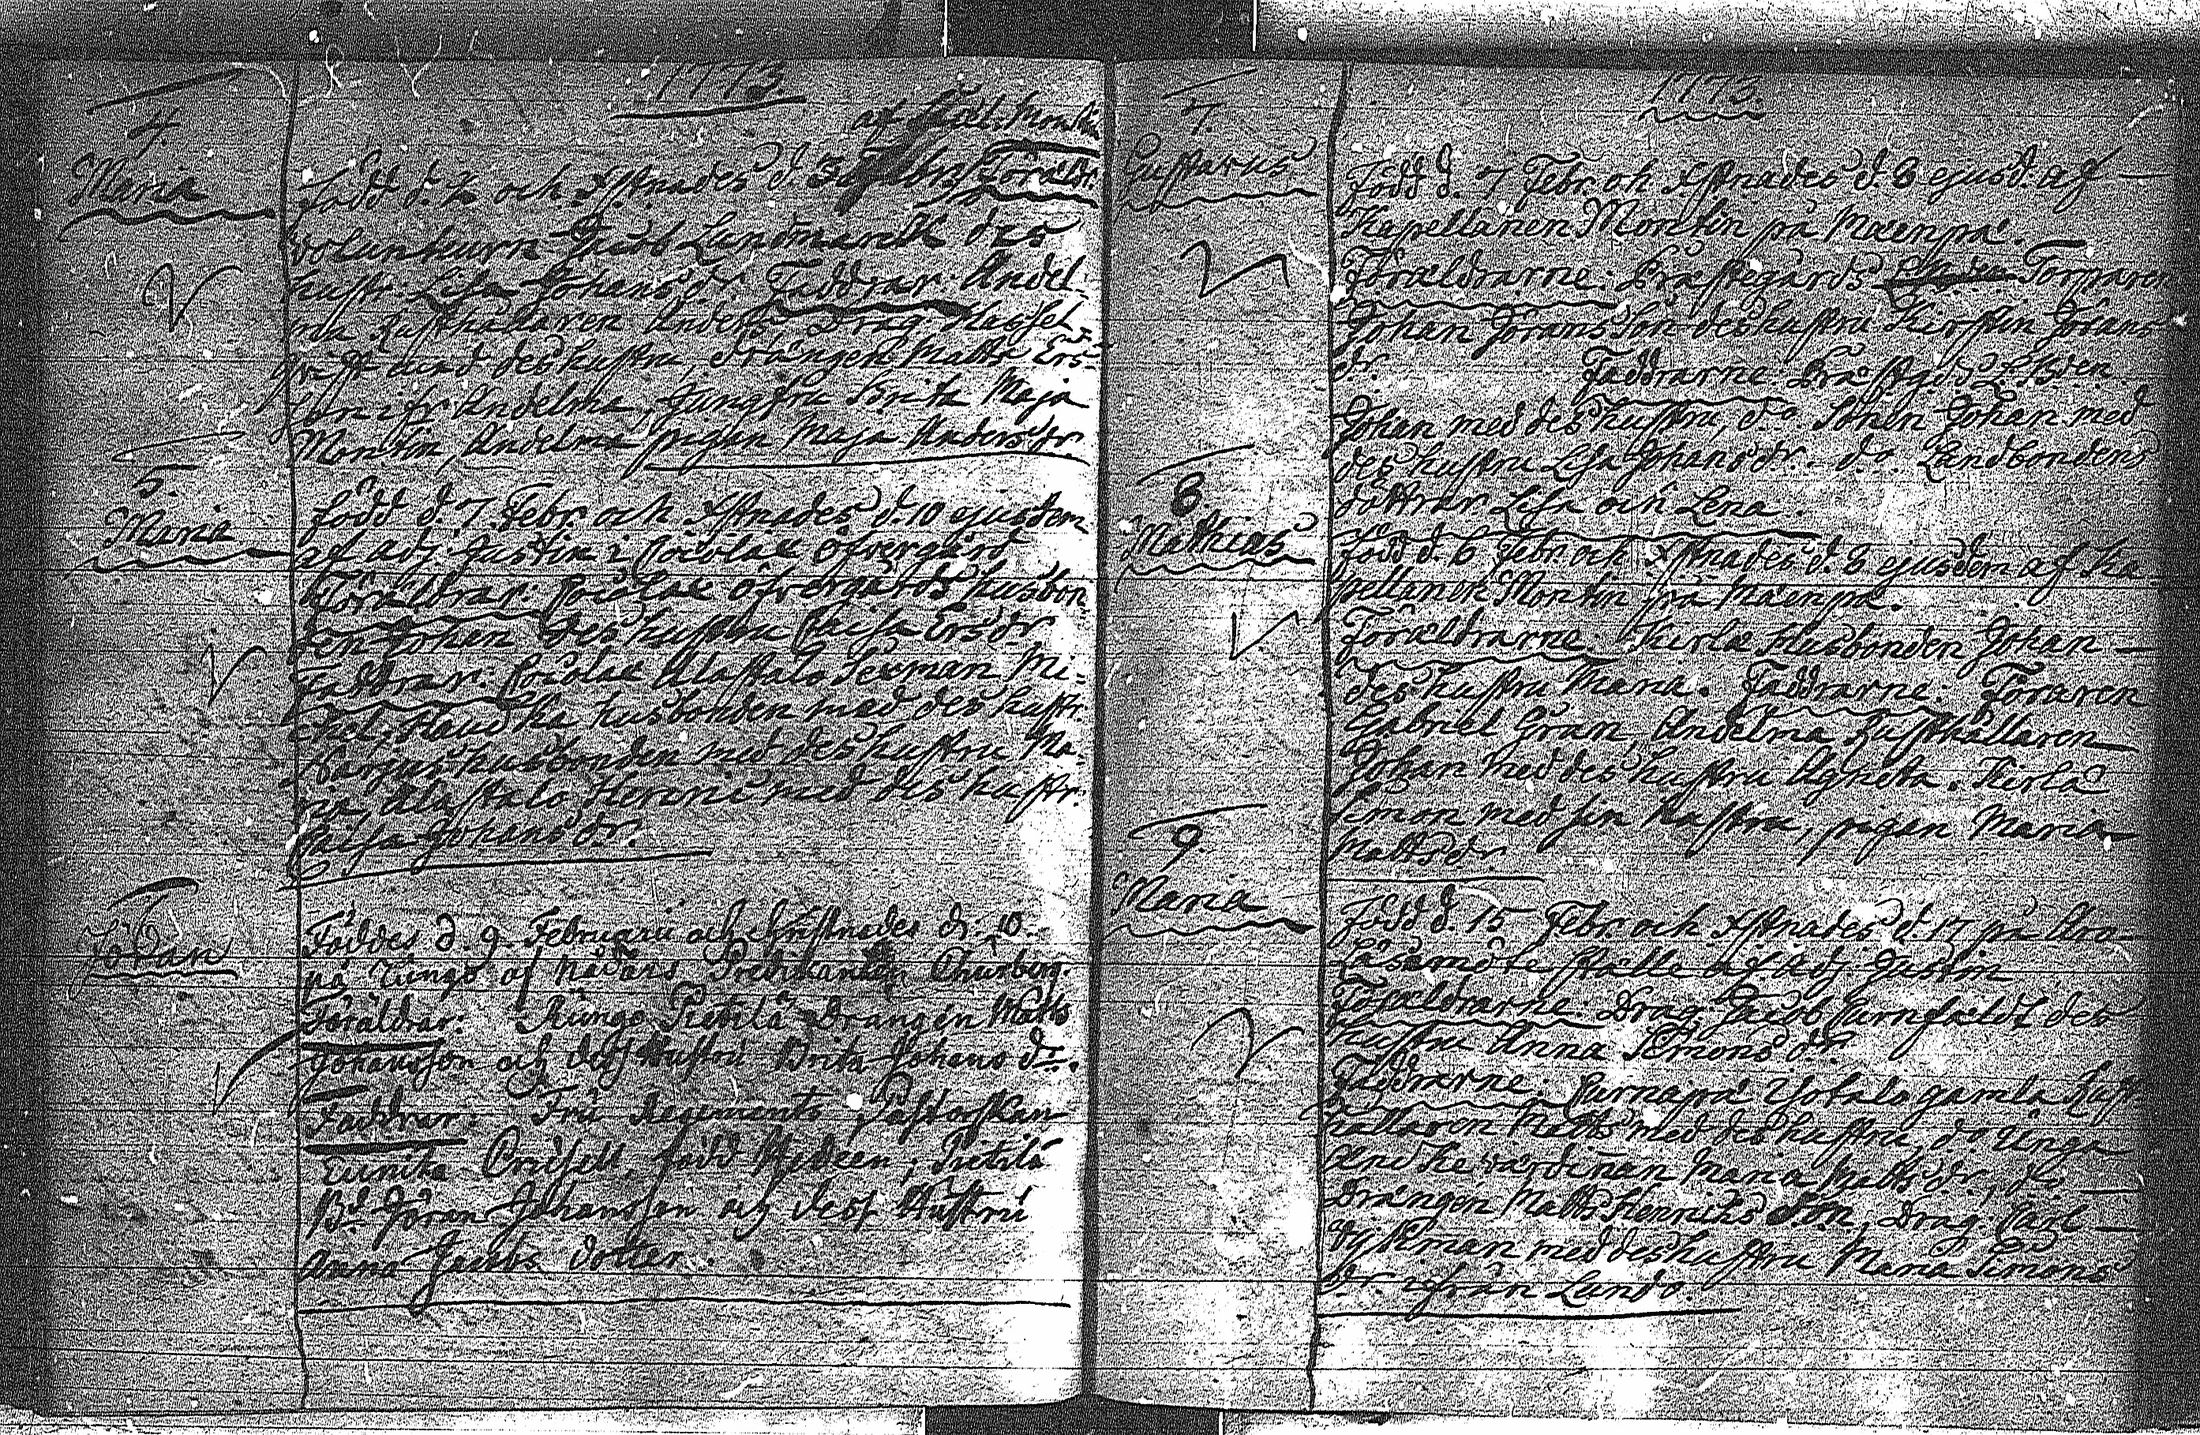 1773
af Montin
4.
Maria
född d. 2 och Xstnades d. Föräldr.
volunteuren Jacob Landmarck des
hustr. Lisa Johans dr. Faddrar: Andel-
ma Rusthållaren Anders Drag Hassel-
qvist med des hustru, drängen Matts Ers-
son ifr. Andelma, Jungfru Brita Maja
Montin, Andelma pigan Maja Anders dr.
5.
Maria
född d. 7 Febr. och Xstnades d. 10 ejusdem
af adj. Justin i öfvergård
Föräldrar. öfvergårds husbon-
den Johan des hustru Caisa Ersdr
Faddrar. Alastalo Sexman Mi-
ckel, husbonden med des hustr.
husbonden med des hustru Ma-
ria, Alastalo Henric med des hustr.
Caisa Johans dr.
6
Jöran
Föddes d. 9 Februarii och christnades d. 10
på af Predikanten Churberg.
Föräldrar: Pietilä Drängen Matts
Johansson och dess Hustru Brita Johans dr.
Faddrar: Fru Regements Pastorskan
Eunika född Hydeen, Pietilä
Bd. Jöran Johansson och dess Hustru
Anna Jacobs dotter.
1773.
7.
Gustavus
född d. 7 Febr. och Xstnades d. 8 ejusd. af
Kapellanen Montin på Mäenpä.
Föräldrarne: Prästegårds Torparen
Johan Jöransson des hustru Kirstin Jörans
dr. Faddrarne Prästgds L. Bden
Johan med des hustru, do. Sonen Johan med
des hustru Lisa Johans dr. do. Landbondens
döttrar Lisa och Lena.
8
Mathias
född d. 6 Febr. och Xstnades d. 8 ejusdem af Ka-
pellanen Montin på Mäenpä.
Föräldrarne Kerla Husbonden Johan
des hustru Maria. Faddrarne. Föraren
Gabriel Gran, Andelma Rusthållaren
Johan med des hustru Agneta. Kerla
Simon med sin hustru, pigan Maria
Mattsdr
9.
Maria
född d. 15 Febr. och Xstnades d. 17 på
Läsemöte ställe af Adj. Justin
Föräldrarne: Drag. Jacob des
hustru Anna Simons dr.
Faddrarne. Yotalo gamla Rust
hållaren Matts med des hustru, do unga
Encke värdinnan Maria Matts dr, do
drängen Matts Henrichs son, Drag. Carl
Dyckman med des hustru Maria Simons
dr. ifrån Lundo.